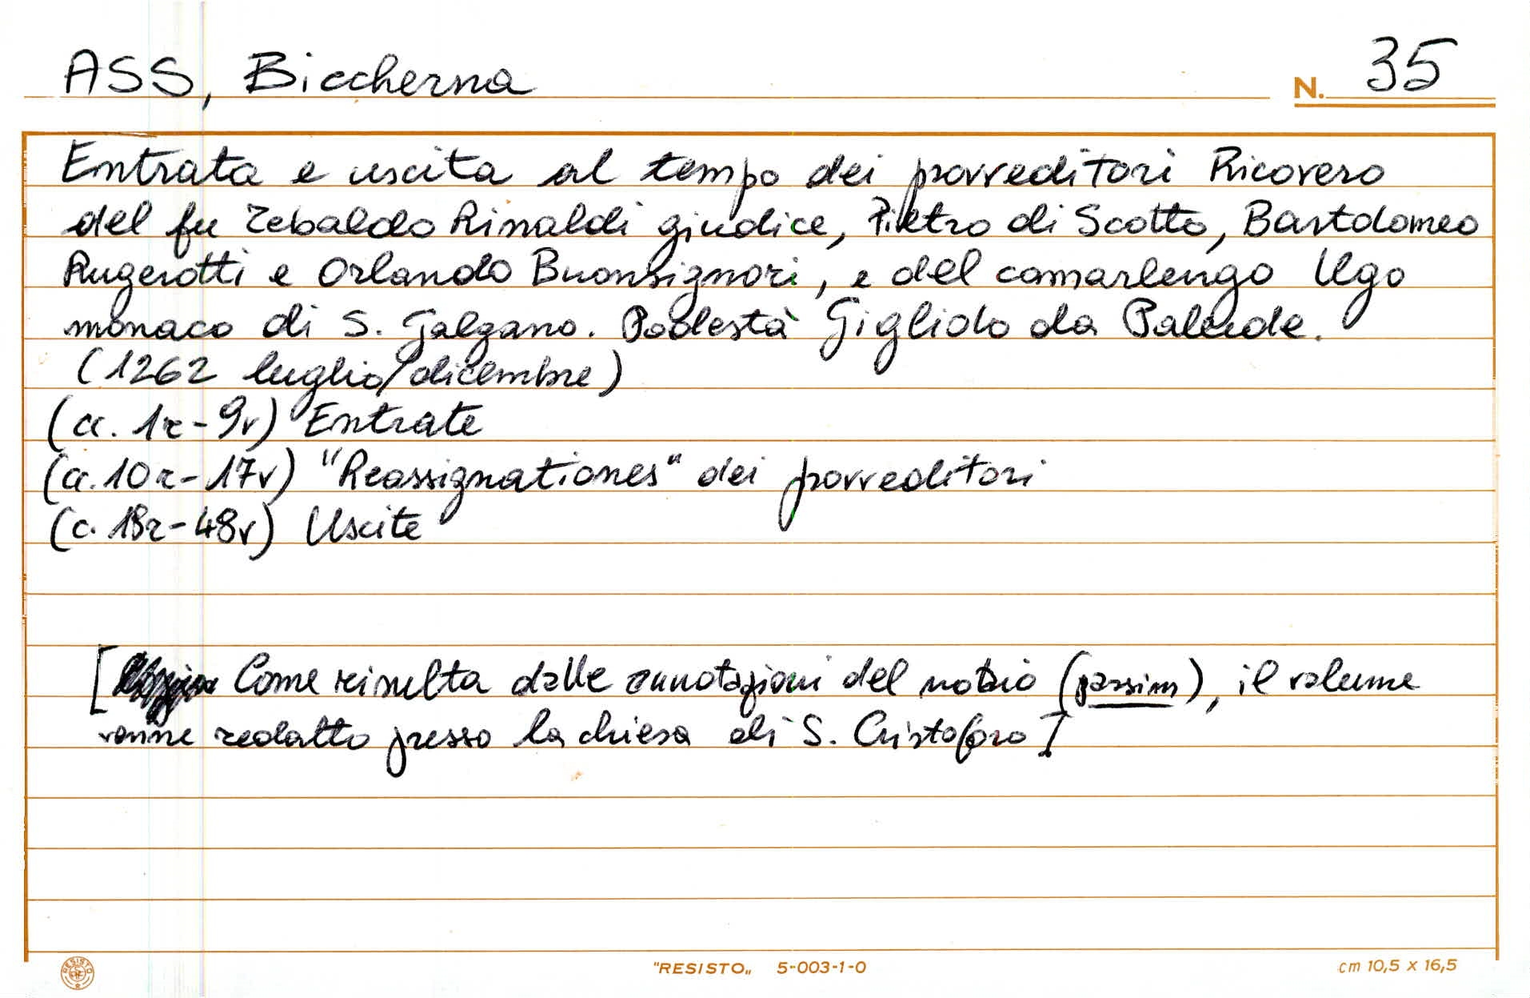 ASS, Biccherna
N. 35
Entrata e uscita al tempo dei provveditori Ricovero
del fu Tebaldo Rinaldi giudice, Pietro di Scotto, Bartolomeo
Rugerotti e Orlando Buonsignori, e del camarlengo Ugo
monaco di S. Galgano. Podestà Gigliolo da Palude.
(1262 luglio/dicembre)
(cc. 1r-9v) Entrate
(cc. 10r-17v) "Reassignationes" dei provveditori
(c. 18r-48v) Uscite
[Come risulta dalle annotazioni del notaio (passim), il volume
venne redatto presso la chiesa di S. Cristoforo]
RESISTO
"RESISTO„ 5-003-1-0
cm 10,5 x 16,5